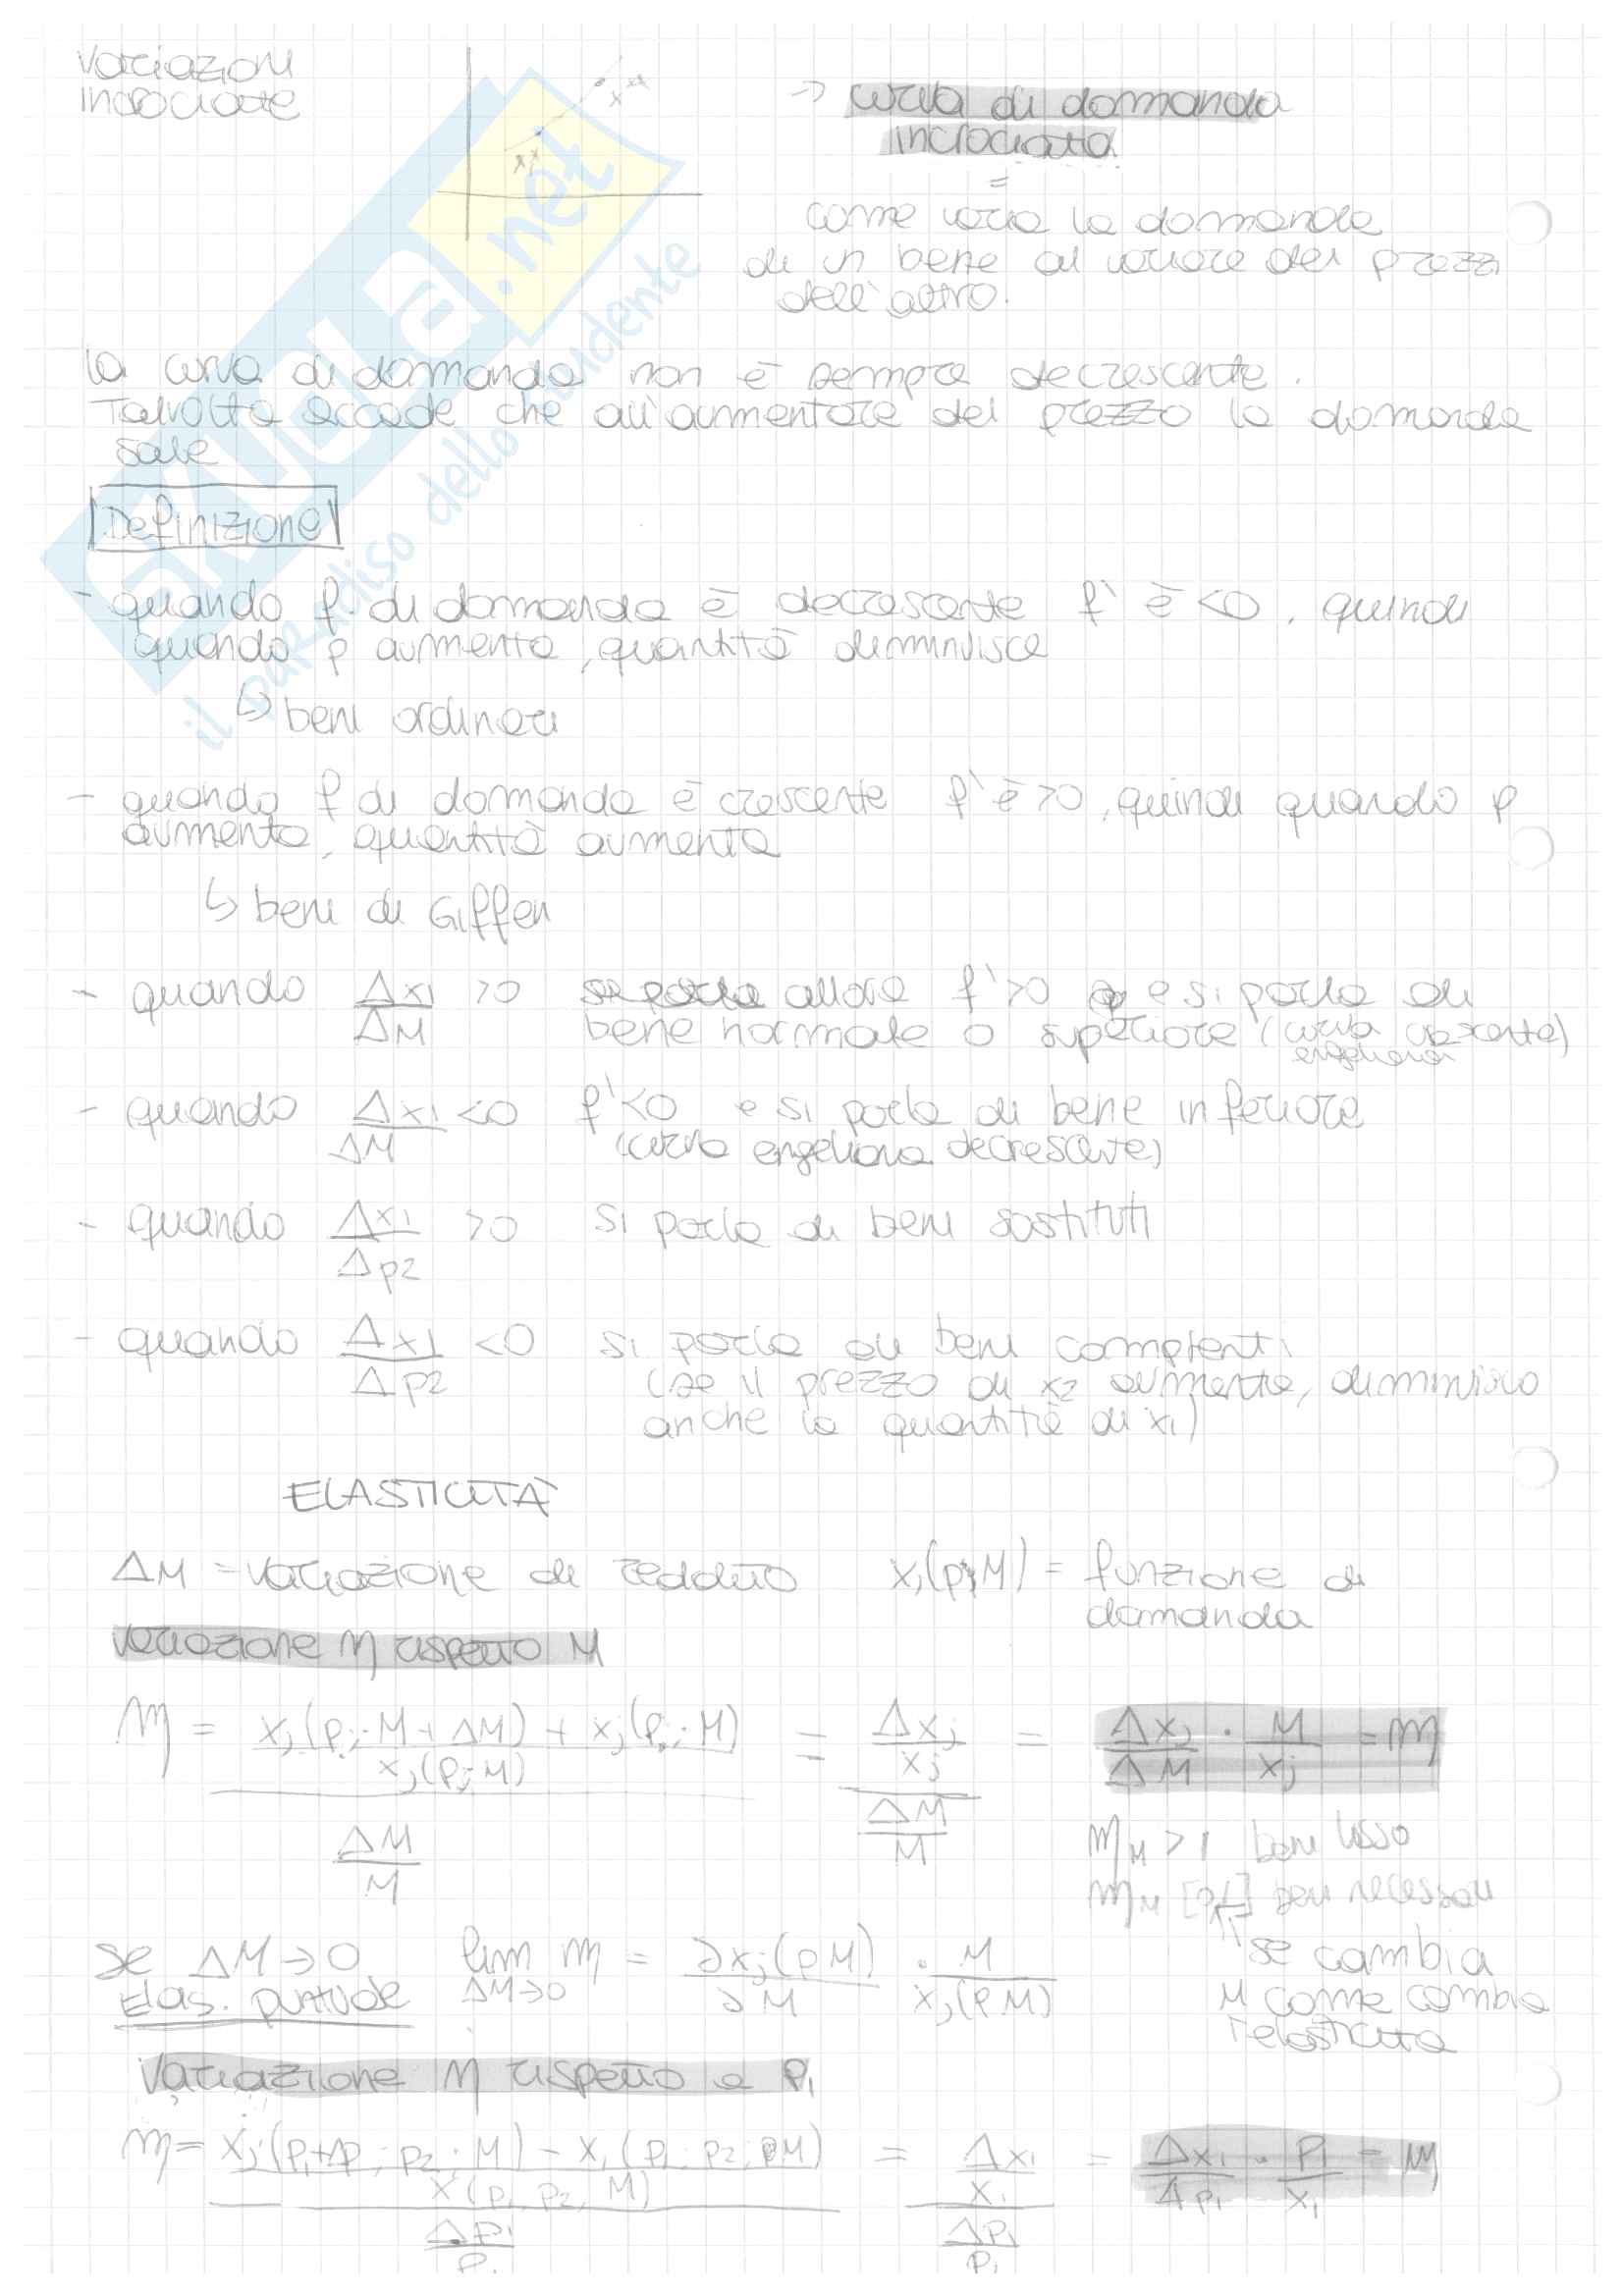 variazioni
incrociate
x**
x*
→ curva di domanda
incrociata
=
come varia la domanda
di un bene al variare dei prezzi
dell'altro.
SKUOLA.net
il paradiso dello studente
la curva di domanda non è sempre decrescente.
Talvolta accade che all'aumentare del prezzo la domanda
sale
Definizione
- quando f. di domanda è decrescente f' è <0, quindi
quando p aumenta, quantità diminuisce
↳ beni ordinari
- quando f di domanda è crescente f' è >0, quindi quando p
aumenta, quantità aumenta
↳ beni di Giffen
- quando Δx1/ΔM >0 se parla allora f'>0 e si parla di
bene normale o superiore (curva engeliana crescente)
- quando Δx1/ΔM <0 f'<0 e si parla di bene inferiore
(curva engeliana decrescente)
- quando Δx1/Δp2 >0 si parla di beni sostituti
- quando Δx1/Δp2 <0 si parla di beni complenti
(se il prezzo di x2 aumenta, diminuisco
anche la quantità di x1)
ELASTICITÀ
ΔM = variazione di reddito xj(p;M) = funzione di
domanda
variazione η rispetto M
η = xj(p;M+ΔM) + xj(p;M) / xj(p;M) / ΔM/M = Δxj/xj / ΔM/M = Δxj/ΔM · M/xj = η
ηM >1 beni lusso
ηM [0,1] beni necessari
se ΔM→0 lim ΔM→0 η = ∂xj(pM)/∂M · M/xj(p.M)
Elas. puntuale
se cambia
M come cambia
l'elasticità
Variazione η rispetto a P1
η = xj(p1+Δp; p2; M) - x1(p1; p2; M) / x(p1, p2, M) / ΔP1/P1 = Δx1/x1 / ΔP1/P1 = Δx1/Δp1 · P1/x1 = η